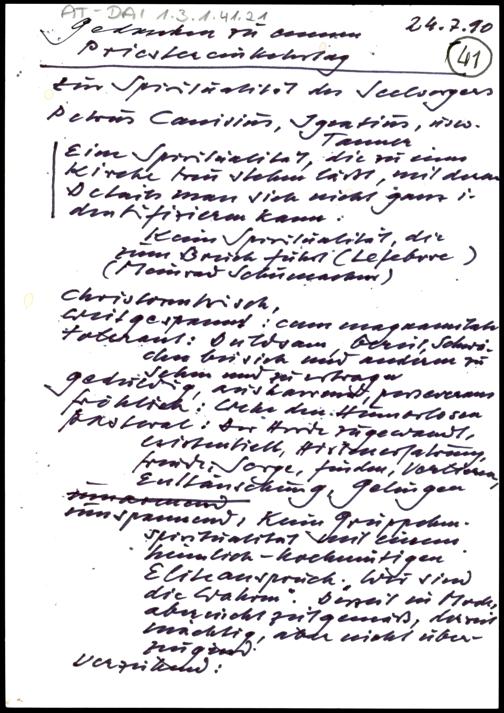 AT-DAI 1.3.1.41.21
Gedanken zu einem 24.7.90
Priestereinkehrtag 41
Zur Spiritualität des Seelsorgers
Petrus Canisius, Ignatius, usw.
Tanner
Eine Spiritualität, die zu einer
Kirche treu stehen läßt, mit deren
Details man sich nicht ganz i-
dentifizieren kann.
Keine Spiritualität, die
zum Bruch führt (Lefebvre)
(Meinrad Schumacher)
Christozentrisch,
Weitgespannt: cum magnanimitate
tolerant: Duldsam bereit, Schwä-
chen bei sich und anderen zu
sehen und zu ertragen
geduldig, ausharrend, perseverans
fröhlich: Wehe den Humorlosen
pastoral: Der Herde zugewandt,
existentiell, Hirtenerfahrung,
Freude, Sorge, finden, Verlieren,
Enttäuschung, Gelingen
umarmend
umspannend: Keine Gruppen-
spiritualität mit einem
heimlich-hochmütigen
Eliteanspruch. "Wir sind
die Wahren". Derzeit in Mode,
aber nicht zeitgemäß, derzeit
mächtig, aber nicht über-
zeugend.
Verzeihend: